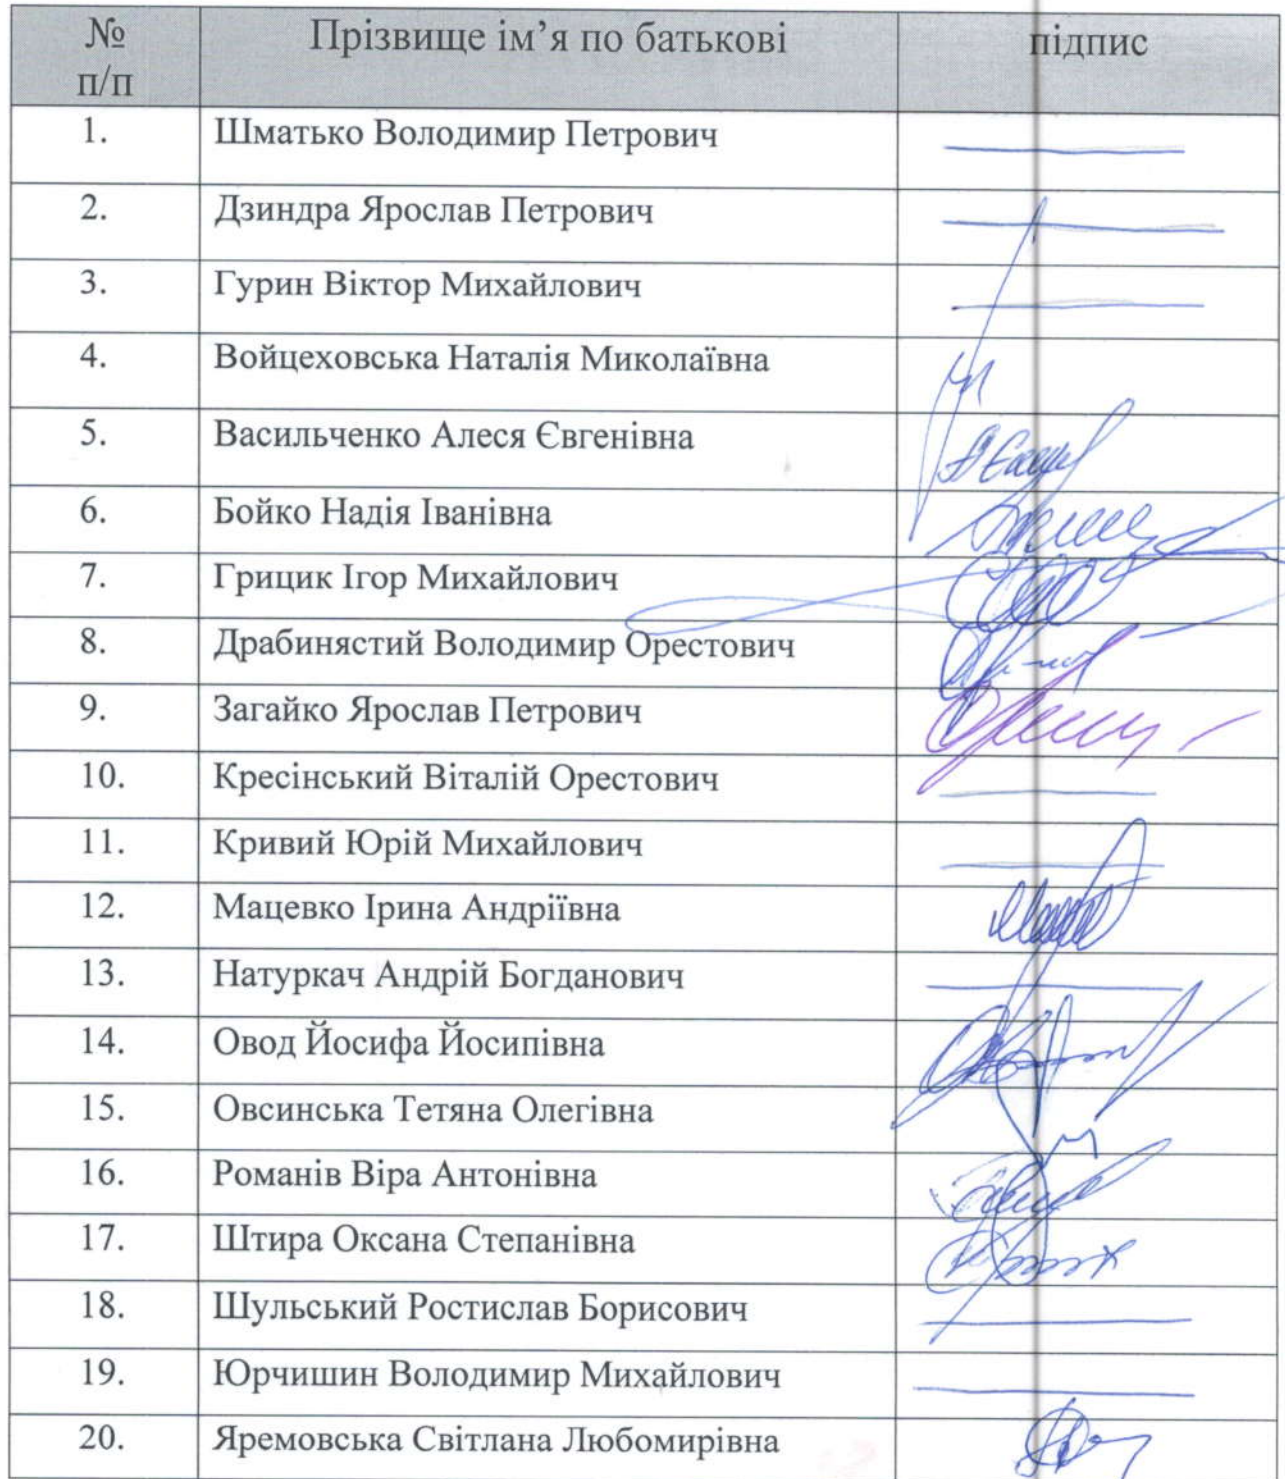 № Прізвище ім’я по батькові підпис
п/п
1. Шматько Володимир Петрович
2. Дзиндра Ярослав Петрович
3. Гурин Віктор Михайлович
4. Войцеховська Наталія Миколаївна
5. Васильченко Алеся Євгенівна
6. Бойко Надія Іванівна
7. Грицик Ігор Михайлович
8. Драбинястий Володимир Орестович
9. Загайко Ярослав Петрович
10. Кресінський Віталій Орестович
11. Кривий Юрій Михайлович
12. Мацевко Ірина Андріївна
13. Натуркач Андрій Богданович
14. Овод Йосифа Йосипівна
15. Овсинська Тетяна Олегівна
16. Романів Віра Антонівна
17. Штира Оксана Степанівна
18. Шульський Ростислав Борисович
19. Юрчишин Володимир Михайлович
20. Яремовська Світлана Любомирівна